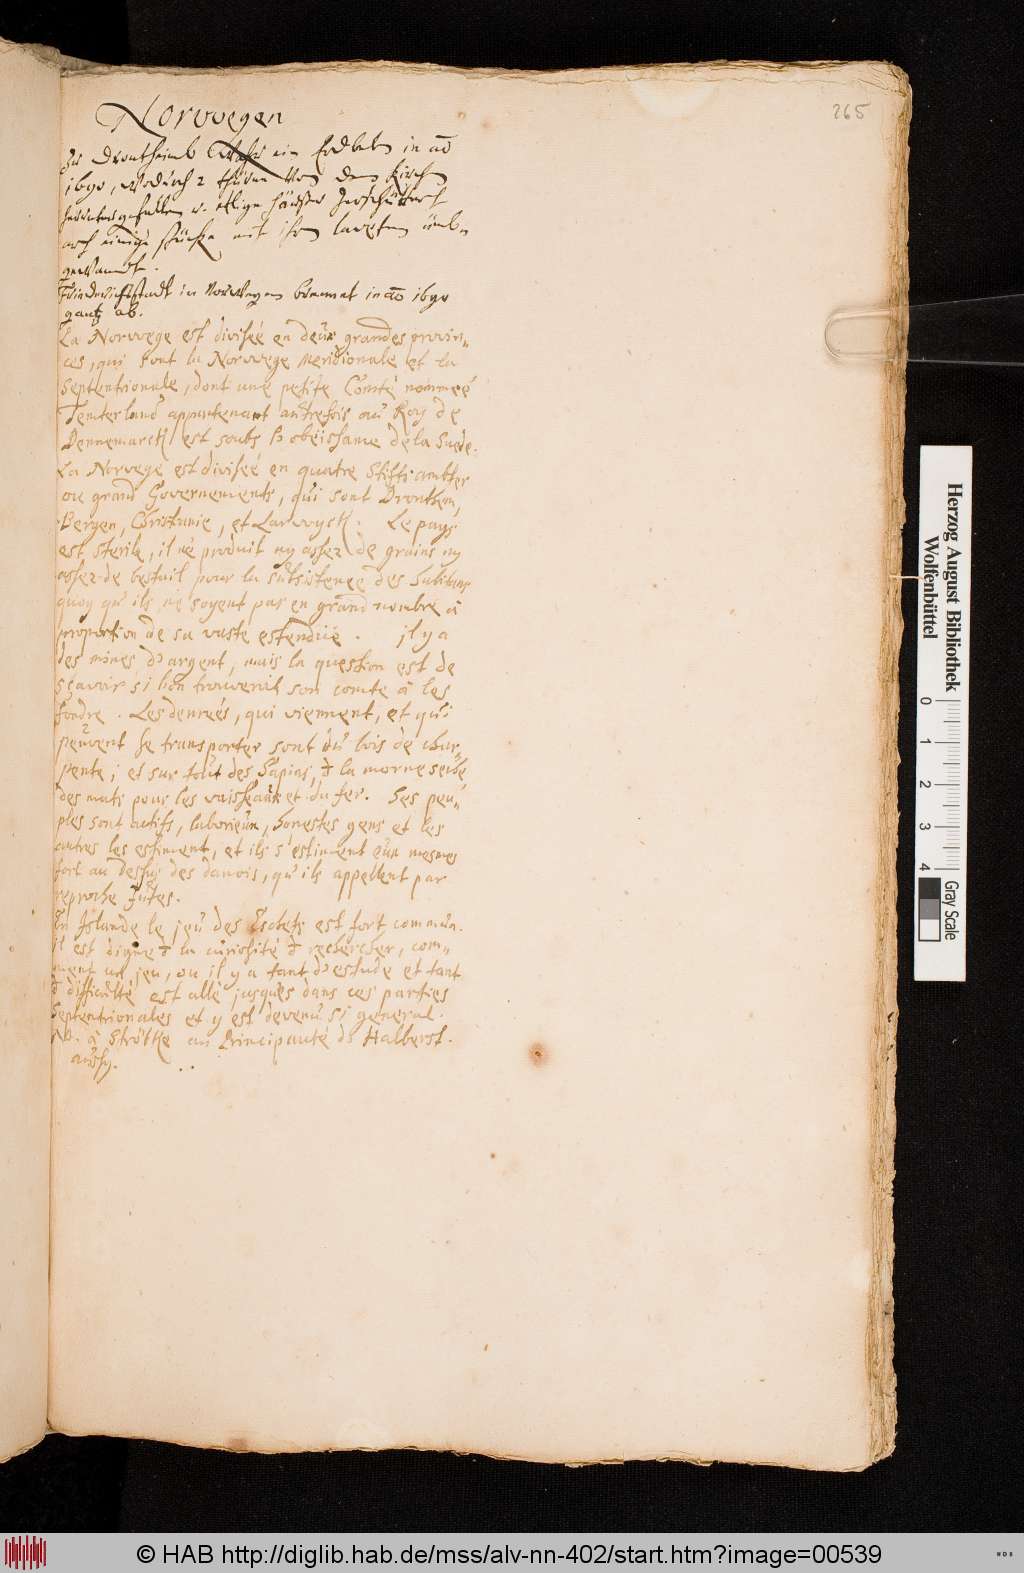 265
Norwegen
Zu Drontheimb wahr ein Erdbeben in aõ
1690, wodurch 2 thürme von dem Kirchen
heruntergefallen u. etlige häußer zerschüttert
auch einige stücke mit ihren laveten ümb-
gewandt.
Friderichstadt in Norwegen brennet in aõ 1690
gantz ab.
La Norwege est divisée en deux grandes provin-
ces, qui sont la Norwege Meridionale et la
Septentrionale, dont une petite Comté nommée
Jemterland appartenant autrefois au Roy de
Dennemarck est soubs l'obëissance de la Suede.
La Norvege est divisée en quatre Stifts ambter
ou grand Governements, qui sont Dronthem,
Bergen, Christianie, et Larwyck. Le pays
est sterile, il ne produit ny assez de grains ny
assez de bestail pour la subsistence des habitans
quoy qu'ils ne soyent pas en grand nombre à
proportion de sa vaste estendüe. il y a
des mines d'argent, mais la question est de
sçavoir si l'on trouveroit son comte à les
fondre. Les denrées, qui viennent, et qui
peuvent se transporter sont du bois de char-
pente; et sur tout des Sapins, la morue seiche
des mats pour les vaisseaux et du fer. Ses peu-
ples sont actifs, laborieux, honestes gens et les
autres les estiment, et ils s'estiment eux mesmes
fort au dessus des danois, qu'ils appellent par
reproche Jutes.
En Islande le jeu des Eschets est fort commun.
il est digne de la curiosité de rechercher, com-
ment un jeu, ou il y a tant d'estude et tant
de difficulté est allé jusques dans ces parties
Septentrionales et y est devenu si general.
NB. à Ströpke au Principauté de Halberst.
aussy.
Herzog August Bibliothek
Wolfenbüttel
0 1 2 3 4
Gray Scale
© HAB http://diglib.hab.de/mss/alv-nn-402/start.htm?image=00539